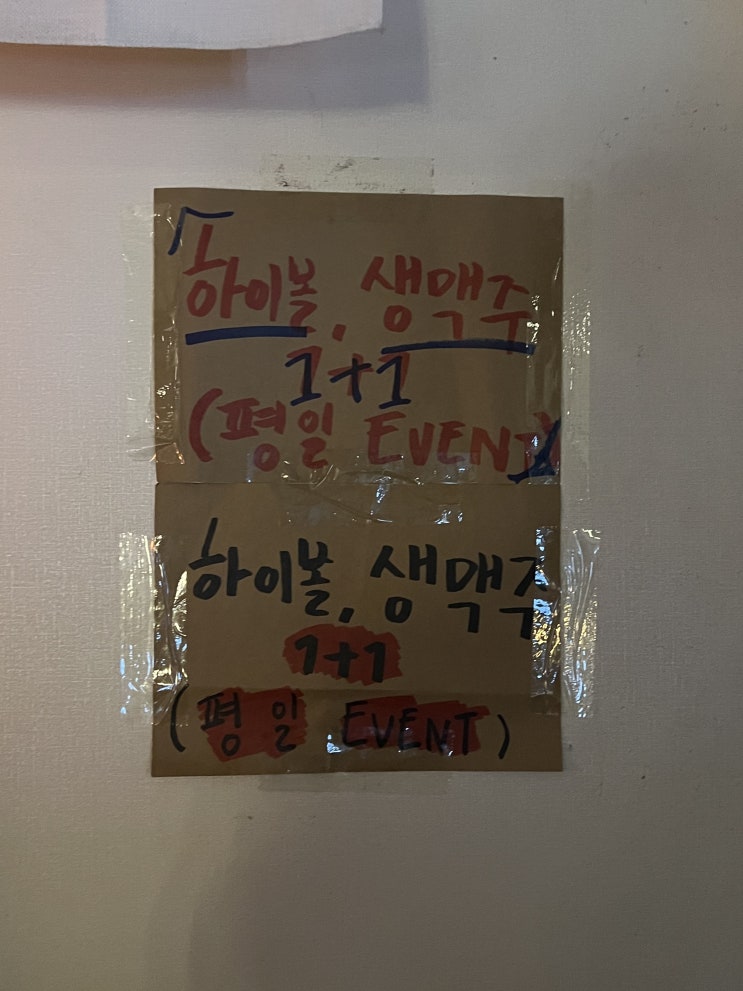 「하이볼, 생맥주
1+1
(평일 EVENT)」
하이볼, 생맥주
1+1
(평일 EVENT)